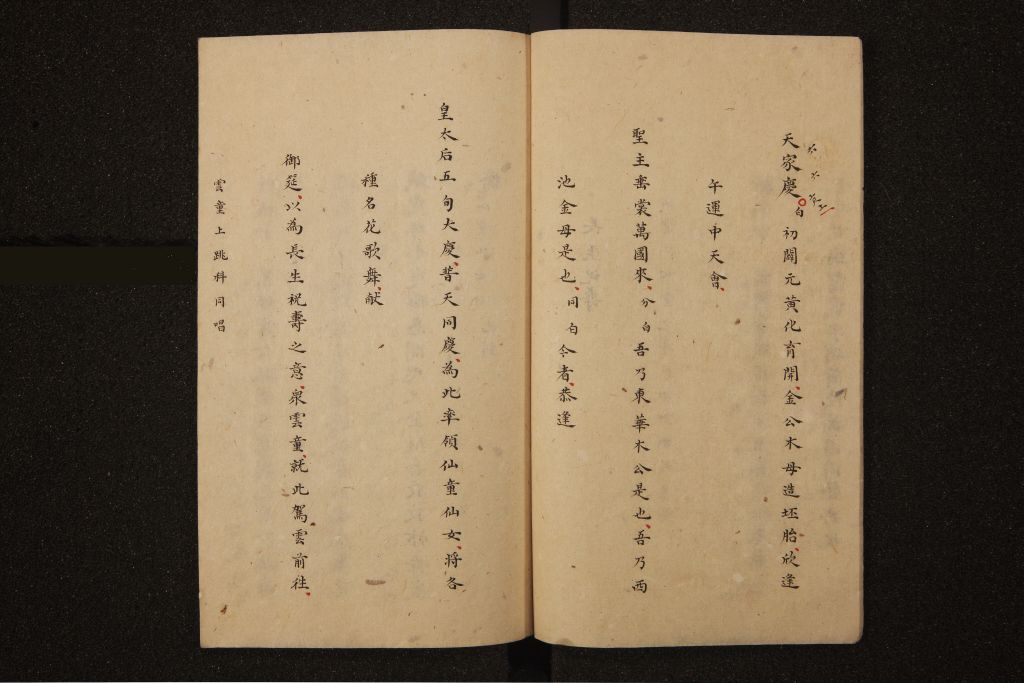 天家慶。白初闢元黃化育開、金公木母造坯胎、欣逢
午運中天會、
聖主垂裳萬國來、分白吾乃東華木公是也、吾乃西
池金母是也、同白今者、恭逢
皇太后五旬大慶、普天同慶、為此率領仙童仙女、將各
種名花歌舞、献
御筵、以為長生祝壽之意、衆雲童、就此駕雲前徃、
雲童上跳科同唱